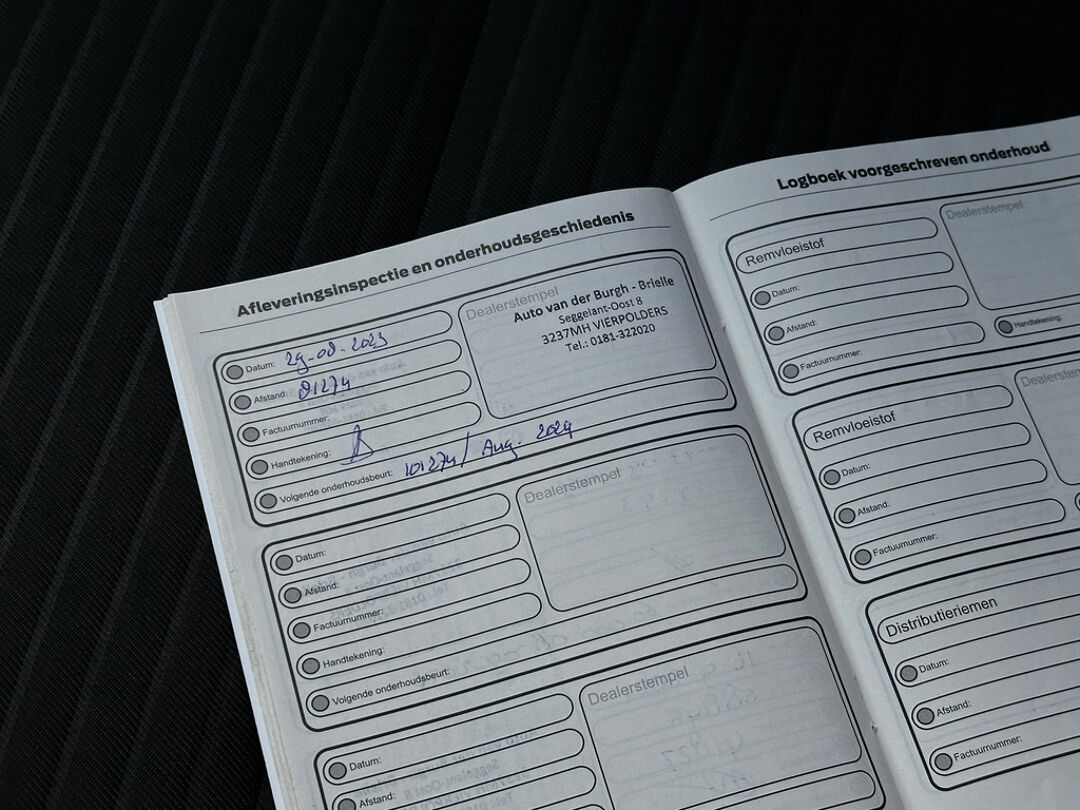 Afleveringsinspectie en onderhoudsgeschiedenis
Datum: 29-08-2023
Afstand: 91274
Factuurnummer:
Handtekening:
Volgende onderhoudsbeurt: 101274/ Aug. 2024
Dealerstempel
Auto van der Burgh - Brielle
Seggelant-Oost 8
3237MH VIERPOLDERS
Tel.: 0181-322020
Datum:
Afstand:
Factuurnummer:
Handtekening:
Volgende onderhoudsbeurt:
Dealerstempel
Datum:
Afstand:
Dealerstempel
Logboek voorgeschreven onderhoud
Remvloeistof
Datum:
Afstand:
Factuurnummer:
Dealerstempel
Handtekening:
Remvloeistof
Datum:
Afstand:
Factuurnummer:
Distributieriemen
Datum:
Afstand:
Factuurnummer: